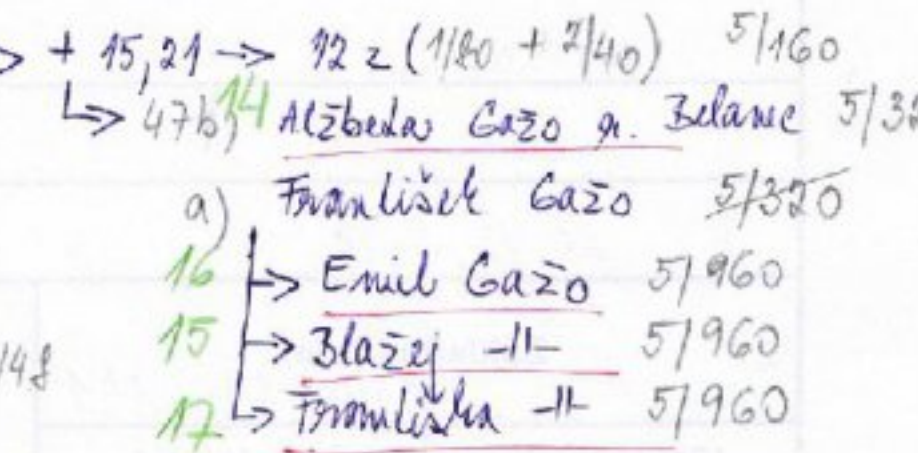 + 15,21 → 12 z (1/80 + 2/40) 5/160
47b) 14 Alžbeta Gažo r. Belane 5/32
a) František Gažo 5/320
16 → Emil Gažo 5/960
15 → Blažej -||- 5/960
17 → Františka -||- 5/960